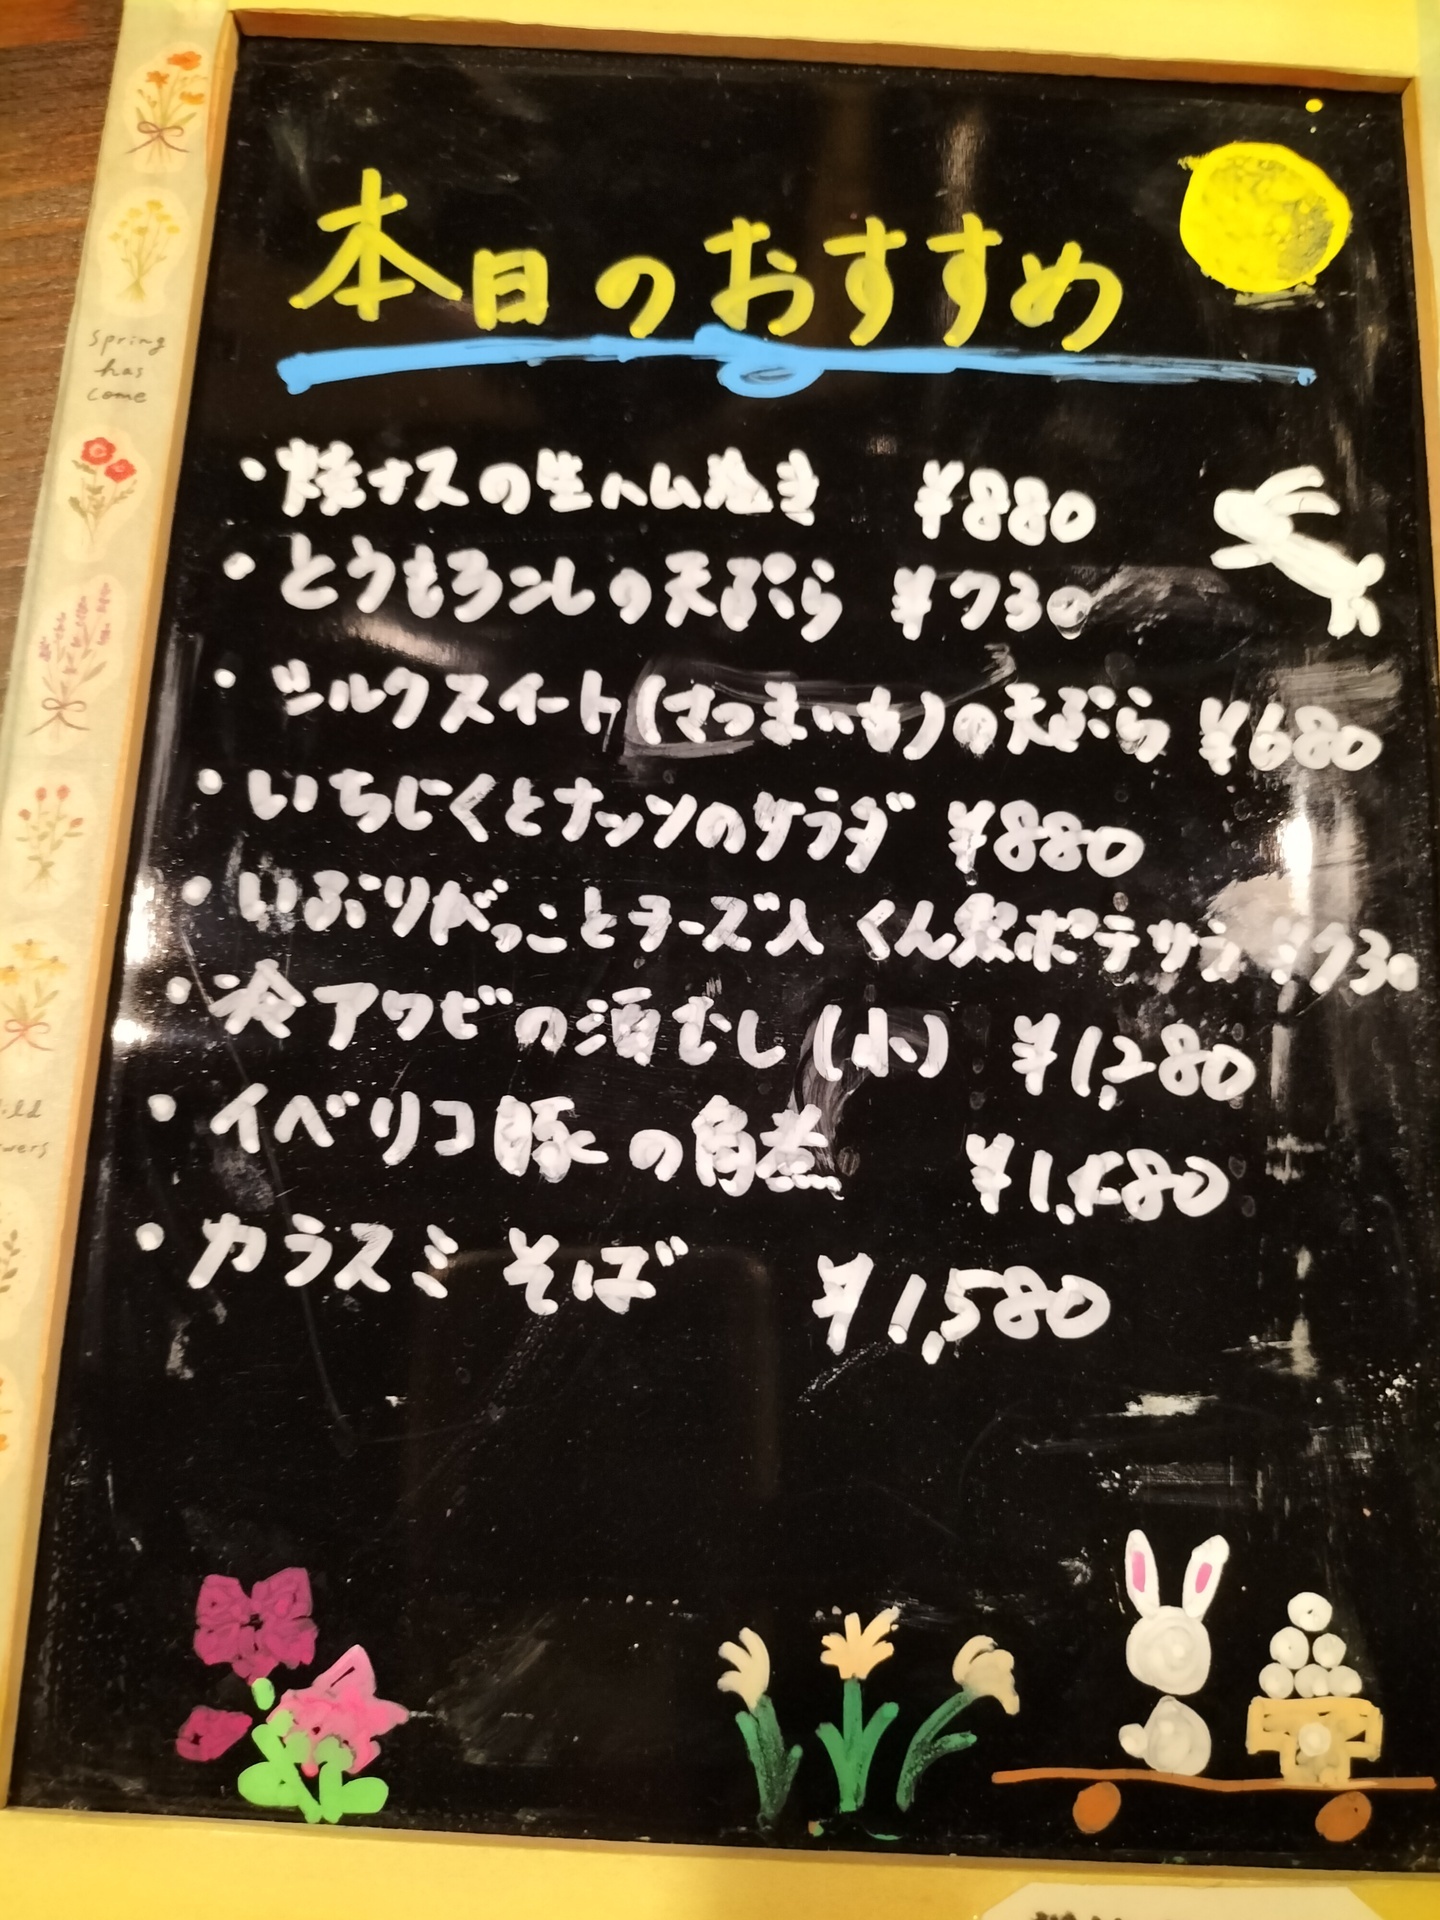 本日のおすすめ
・焼ナスの生ハム巻き ¥880
・とうもろこしの天ぷら ¥730
・シルクスイート(さつまいも)の天ぷら ¥680
・いちじくとナッツのサラダ ¥880
・いぶりがっことチーズ入 くん製ポテサラ ¥730
・冷アワビの酒むし(小) ¥1,280
・イベリコ豚の角煮
・カラスミそば ¥1,580
Spring
has
come